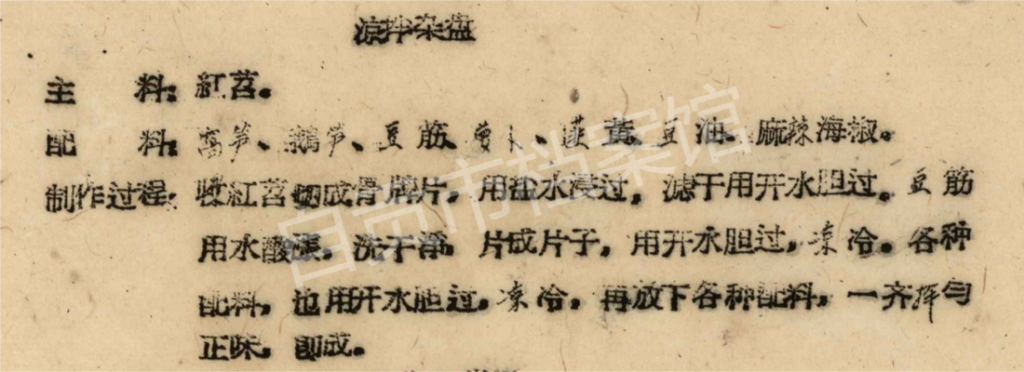 凉拌杂盘
主 料：紅苕。
配 料：萵笋、鵝笋、豆筋、萝卜、韮黄、豆油、麻辣海椒。
制作过程：收紅苕切成骨牌片，用盐水浸过，滤干用开水胆过。豆筋
用水酸涨，洗干淨，片成片子，用开水胆过，凉冷。各种
配料，也用开水胆过，凉冷，再放下各种配料，一齐拌匀
正味，即成。
自贡市档案馆